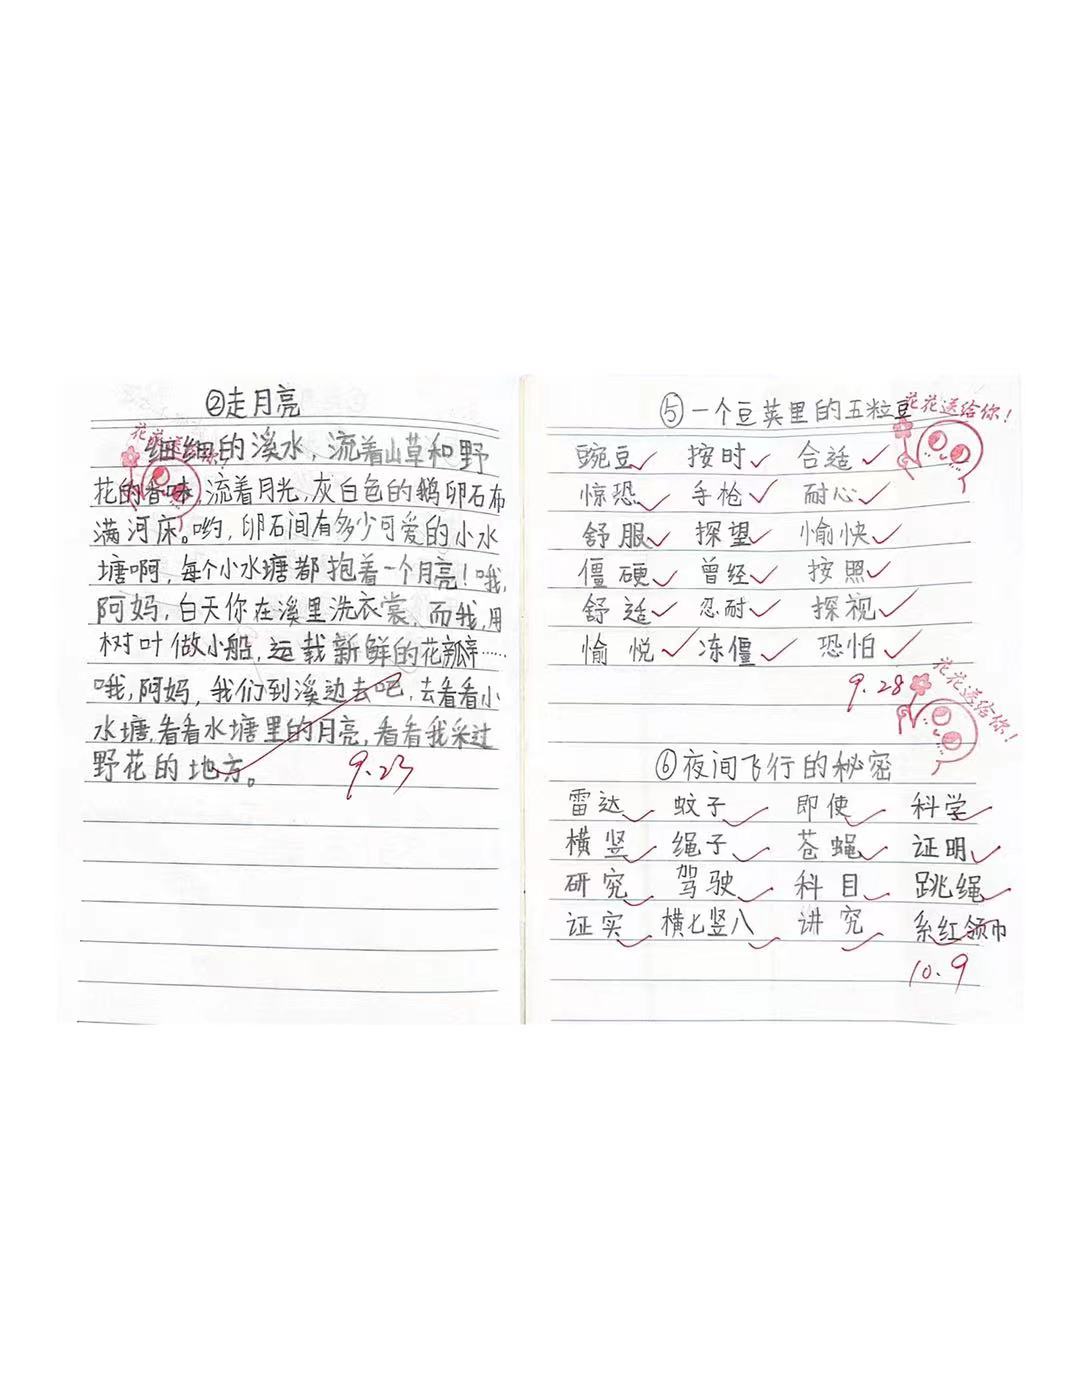 ②走月亮
花花送给你！
细细的溪水，流着山草和野
花的香味，流着月光，灰白色的鹅卵石布
满河床。哟，卵石间有多少可爱的小水
塘啊，每个小水塘都抱着一个月亮！哦，
阿妈，白天你在溪里洗衣裳，而我，用
树叶做小船，运载新鲜的花瓣……
哦，阿妈，我们到溪边去吧，去看看小
水塘，看看水塘里的月亮，看看我采过
野花的地方。
9.23
⑤一个豆荚里的五粒豆
花花送给你！
豌豆 按时 合适
惊恐 手枪 耐心
舒服 探望 愉快
僵硬 曾经 按照
舒适 忍耐 探视
愉悦 冻僵 恐怕
9.28
花花送给你！
⑥夜间飞行的秘密
雷达 蚊子 即使 科学
横竖 绳子 苍蝇 证明
研究 驾驶 科目 跳绳
证实 横七竖八 讲究 系红领巾
10.9